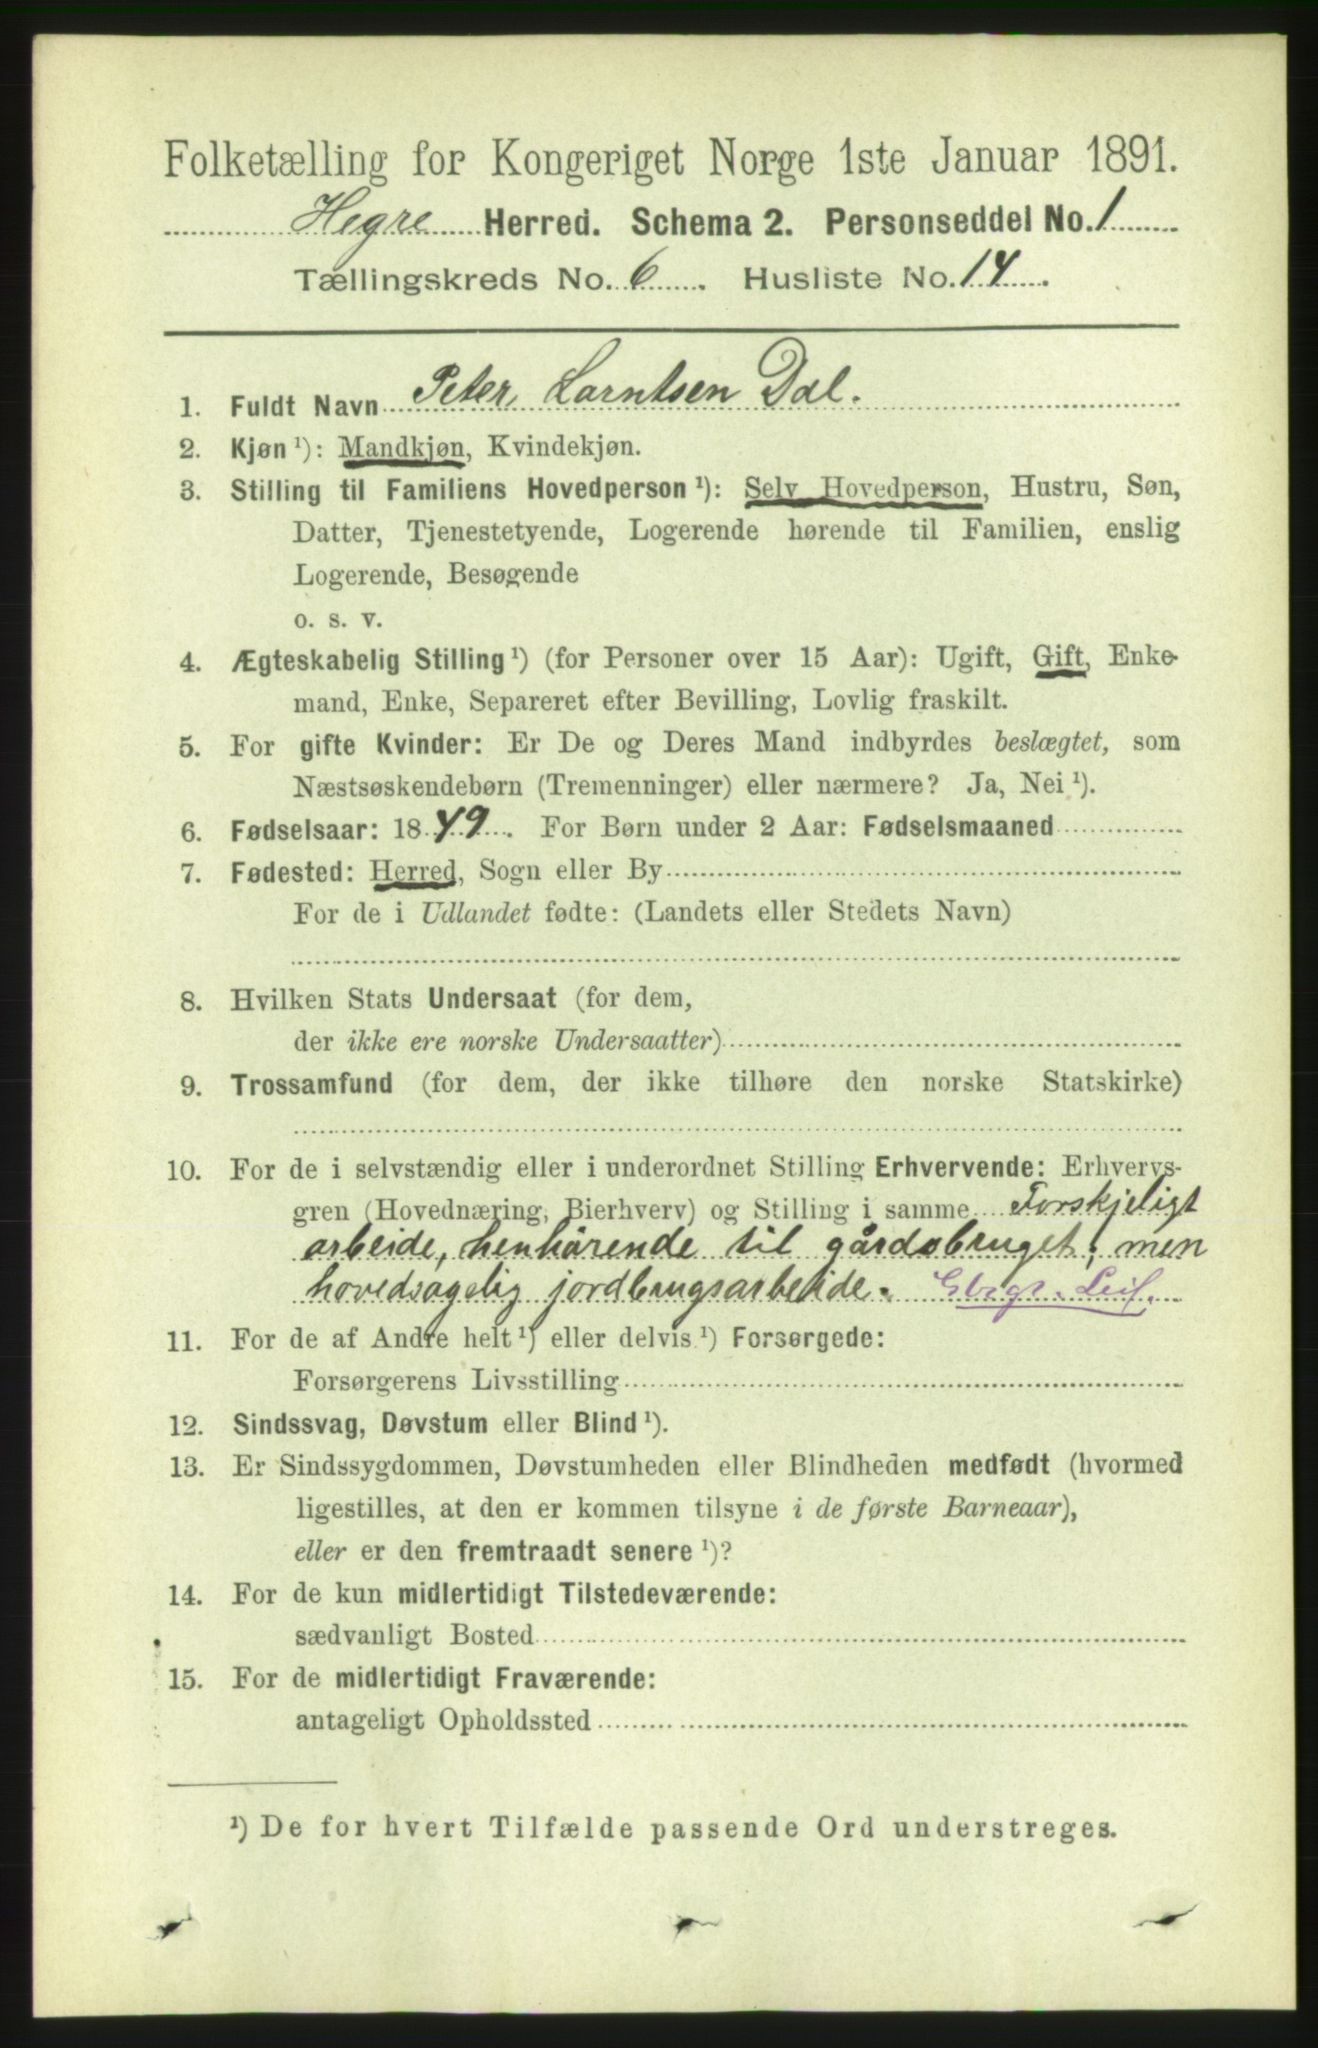 Folketælling for Kongeriget Norge 1ste Januar 1891.
Hegre Herred. Schema 2. Personseddel No. 1
Tællingskreds No. 6. Husliste No. 14.
1. Fuldt Navn Peter Larntsen Dal.
2. Kjøn ¹): Mandkjøn, Kvindekjøn.
3. Stilling til Familiens Hovedperson ¹): Selv Hovedperson, Hustru, Søn,
Datter, Tjenestetyende, Logerende hørende til Familien, enslig
Logerende, Besøgende
o. s. v.
4. Ægteskabelig Stilling ¹) (for Personer over 15 Aar): Ugift, Gift, Enke-
mand, Enke, Separeret efter Bevilling, Lovlig fraskilt.
5. For gifte Kvinder: Er De og Deres Mand indbyrdes beslægtet, som
Næstsøskendebørn (Tremenninger) eller nærmere? Ja, Nei ¹).
6. Fødselsaar: 1849. For Børn under 2 Aar: Fødselsmaaned
7. Fødested: Herred, Sogn eller By
For de i Udlandet fødte: (Landets eller Stedets Navn)
8. Hvilken Stats Undersaat (for dem,
der ikke ere norske Undersaatter)
9. Trossamfund (for dem, der ikke tilhøre den norske Statskirke)
10. For de i selvstændig eller i underordnet Stilling Erhvervende: Erhvervs-
gren (Hovednæring, Bierhverv) og Stilling i samme Forskjeligt
arbeide, henhörende til gårdsbruget; men
hovedsagelig jordbrugsarbeide.
11. For de af Andre helt ¹) eller delvis ¹) Forsørgede:
Forsørgerens Livsstilling
12. Sindssvag, Døvstum eller Blind ¹).
13. Er Sindssygdommen, Døvstumheden eller Blindheden medfødt (hvormed
ligestilles, at den er kommen tilsyne i de første Barneaar),
eller er den fremtraadt senere ¹)?
14. For de kun midlertidigt Tilstedeværende:
sædvanligt Bosted
15. For de midlertidigt Fraværende:
antageligt Opholdssted
¹) De for hvert Tilfælde passende Ord understreges.